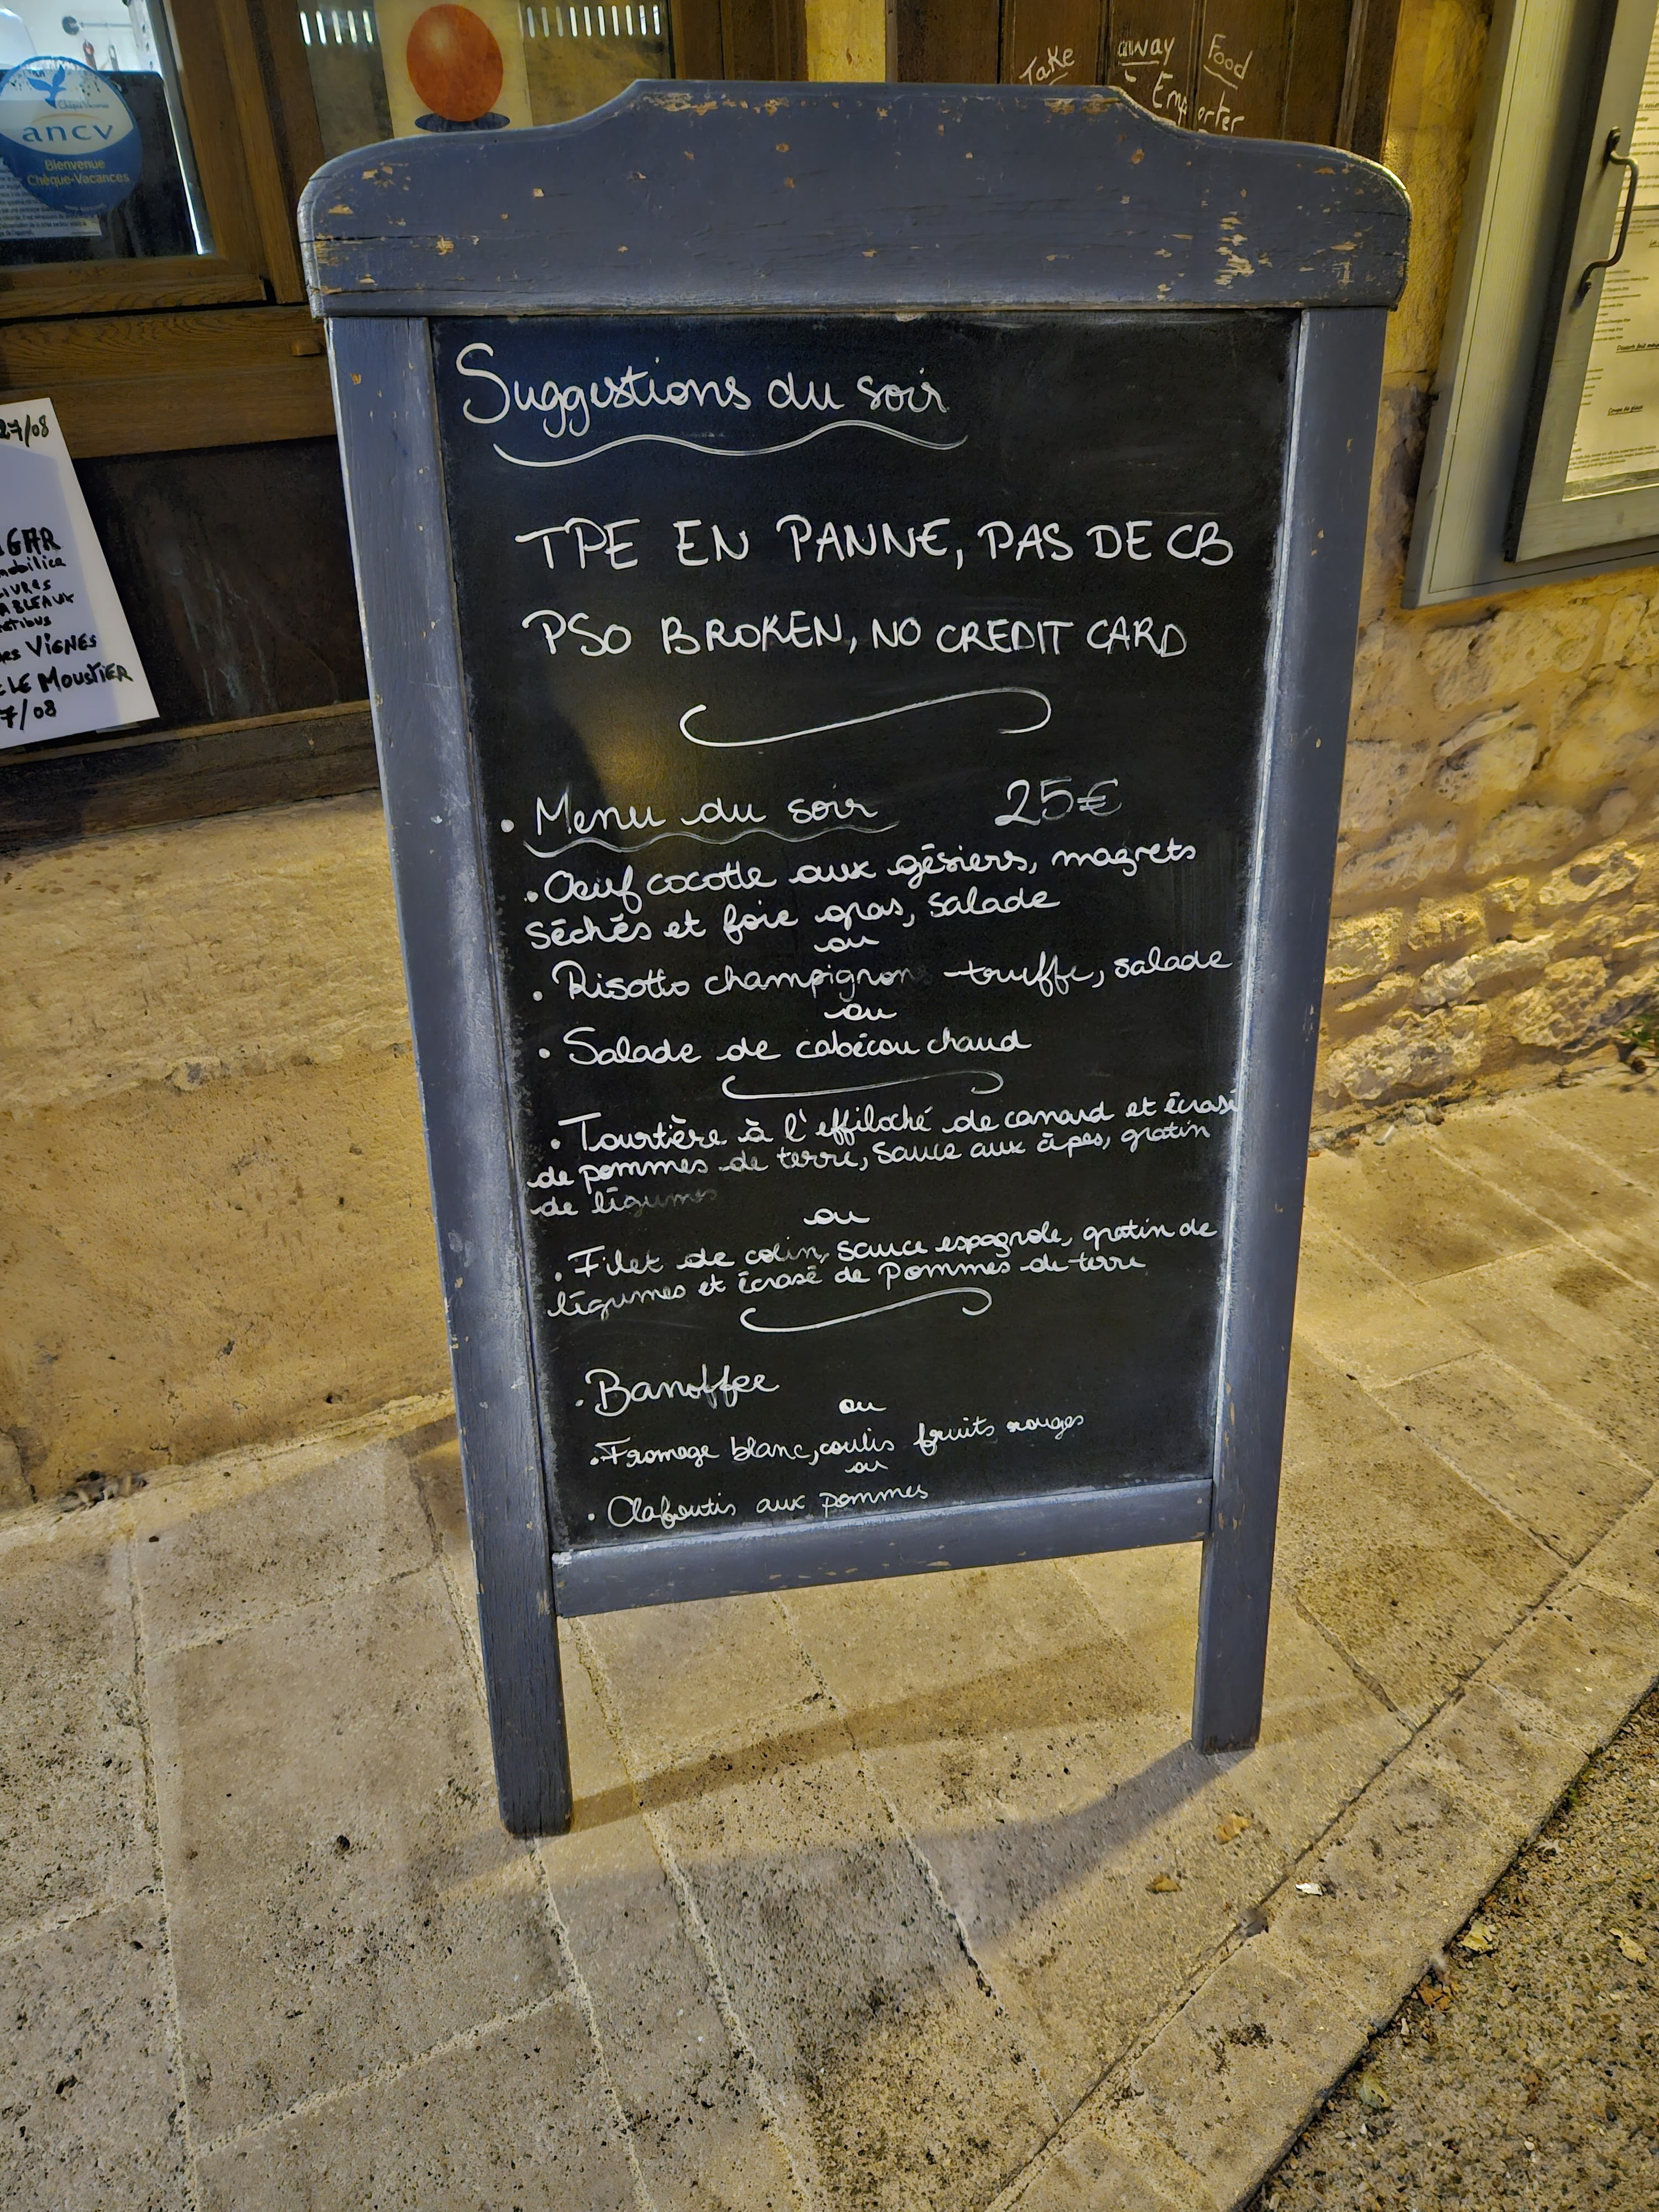 ancv
Bienvenue
Chèque-Vacances
Take away Food
à Emporter
27/08
LIVRES
VIGNES
LE MOUSTIER
7/08
Suggestions du soir
TPE EN PANNE, PAS DE CB
PSO BROKEN, NO CREDIT CARD
• Menu du soir 25€
• Oeuf cocotte aux gésiers, magrets
séchés et foie gras, salade
ou
• Risotto champignon truffe, salade
ou
• Salade de cabécou chaud
• Tourtière à l'effiloché de canard et écrasé
de pommes de terre, sauce aux cèpes, gratin
de légumes
ou
• Filet de colin, sauce espagnole, gratin de
légumes et écrasé de pommes de terre
• Banoffee
ou
• Fromage blanc, coulis fruits rouges
ou
• Clafoutis aux pommes